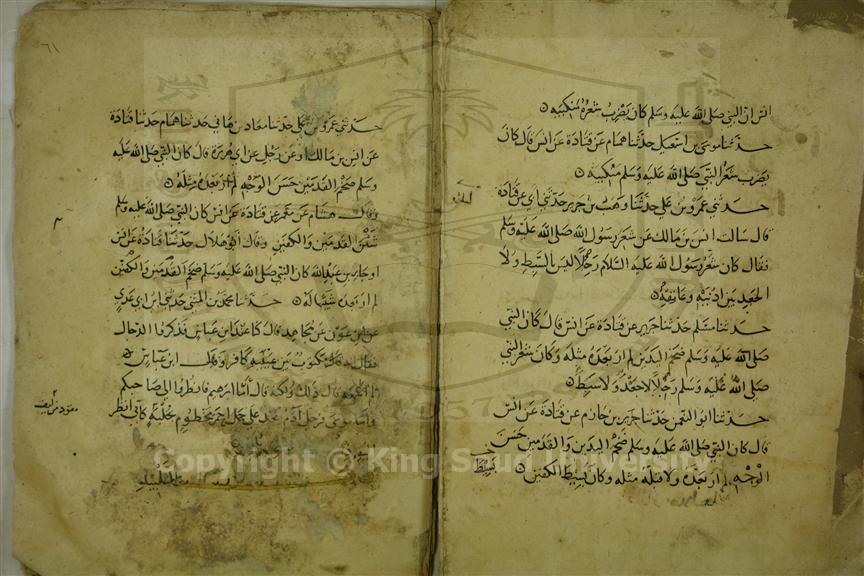 انس ان النبي صلى الله عليه وسلم كان يضرب شعره منكبيه
حدثنا موسى بن اسمعيل حدثنا همام عن قتادة عن انس قال كان
يضرب شعر النبي صلى الله عليه وسلم منكبيه
حدثني عمرو بن علي حدثنا وهب بن جرير حدثني ابي عن قتادة
قال سالت انس بن مالك عن شعر رسول الله صلى الله عليه وسلم
فقال كان شعر رسول الله عليه السلام رجلا ليس السبط ولا
الجعد بين اذنيه وعاتقه
حدثنا مسلم حدثنا جرير عن قتادة عن انس قال كان النبي
صلى الله عليه وسلم ضخم اليدين لم ار بعده مثله وكان شعر النبي
صلى الله عليه وسلم رجلا لا جعد ولا سبط
حدثنا ابو النعمن حدثنا جرير بن حازم عن قتادة عن انس
قال كان النبي صلى الله عليه وسلم ضخم اليدين والقدمين حسن
الوجه لم ار بعده ولا قبله مثله وكان بسيط الكفين
سبط
٦١
حدثني عمرو بن علي حدثنا معاذ بن هاني حدثنا همام حدثنا قتادة
عن انس بن مالك او عن رجل عن ابي هريرة قال كان النبي صلى الله عليه
وسلم ضخم القدمين حسن الوجه لم ار بعده مثله
وقال هشام عن معمر عن قتادة عن انس كان النبي صلى الله عليه وسلم
شثن القدمين والكفين وقال ابو هلال حدثنا قتادة عن انس
او جابر بن عبد الله كان النبي صلى الله عليه وسلم ضخم القدمين والكفين
لم ار بعده شبها له حدثنا محمد بن المثنى حدثني ابن ابي عدي
عن ابن عون عن مجاهد قال كنا عند ابن عباس فذكروا الدجال
فقال انه مكتوب بين عينيه كافر وقال ابن عباس
لم اسمعه قال ذلك ولكنه قال اما ابرهيم فانظروا الى صاحبكم
واما موسى فرجل ادم جعد على جمل احمر مخطوم بخلبة كاني انظر
Copyright © King Saud University
1957